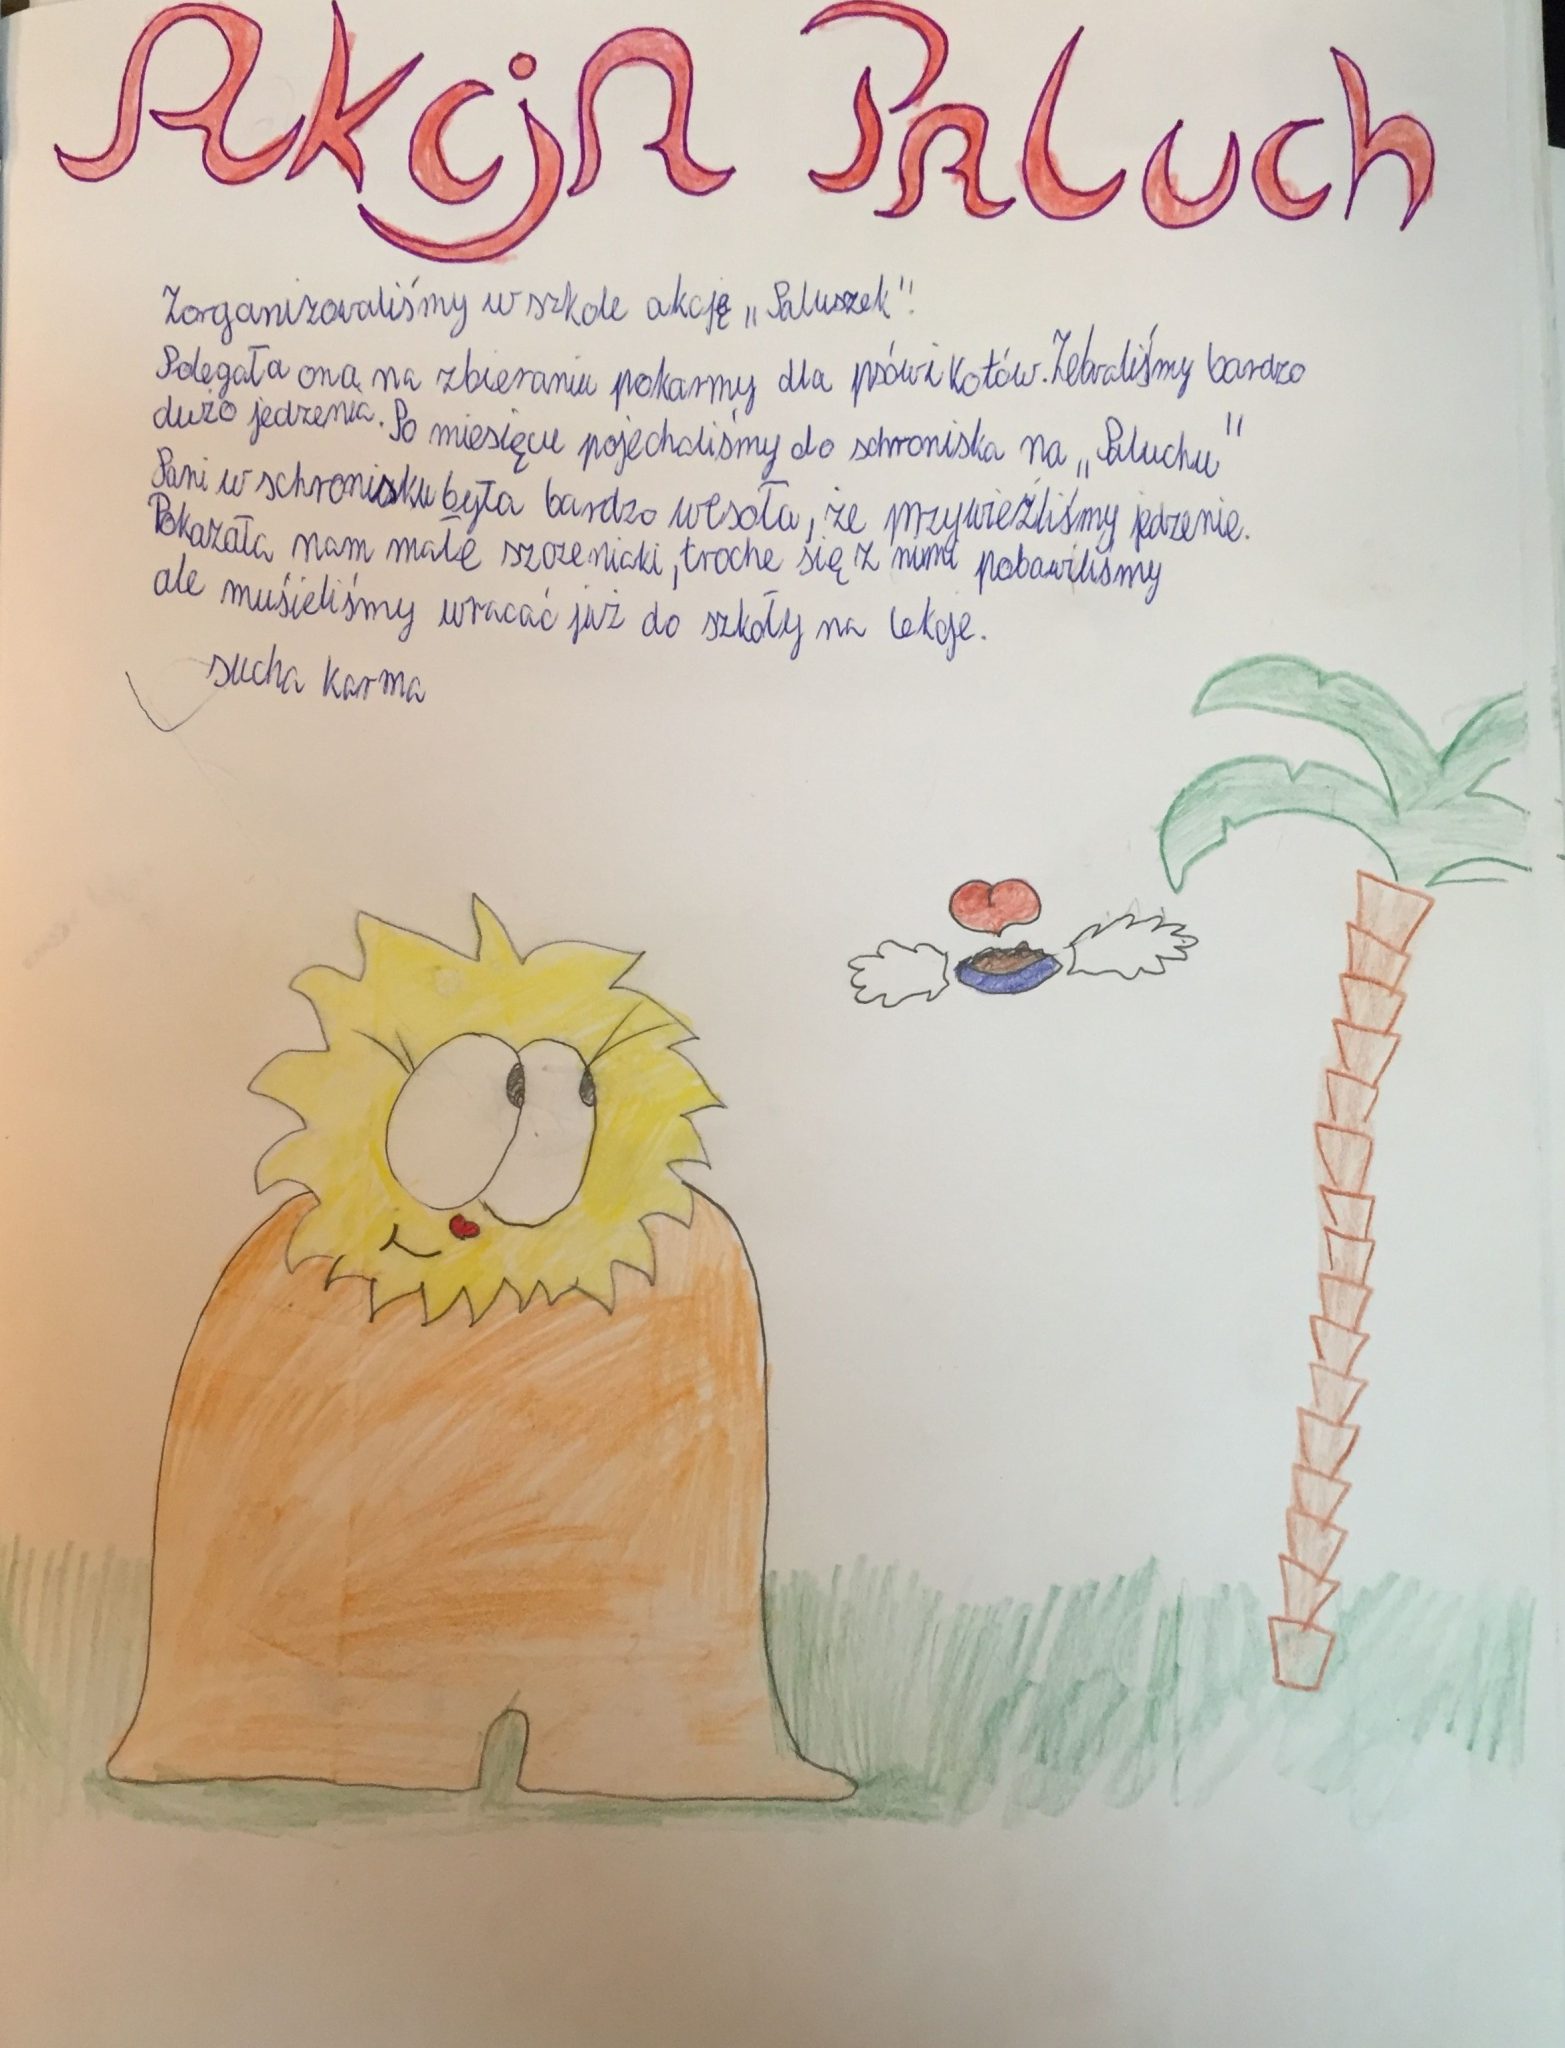 Akcja Paluch
Zorganizowaliśmy w szkole akcję „Paluszek".
Polegała ona na zbieraniu pokarmy dla psów i kotów. Zebraliśmy bardzo
dużo jedzenia. Po miesiącu pojechaliśmy do schroniska na „Paluchu"
Pani w schronisku była bardzo wesoła, że przywieźliśmy jedzenie.
Pokazała nam małe szczeniaki, troche się z nimi pobawiliśmy
ale muśieliśmy wracać już do szkoły na lekcje.
sucha karma